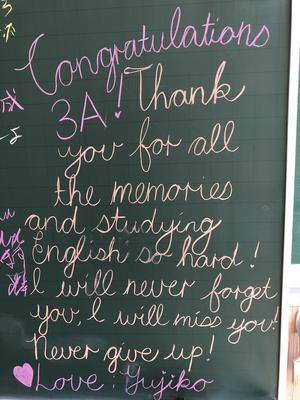 Congratulations
3A! Thank
you for all
the memories
and studying
English so hard!
I will never forget
you, I will miss you!
Never give up!
Love: Yujiko